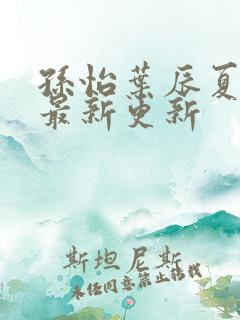 孫怡葉辰夏
最新更新
斯坦尼斯
未经同意禁止转载